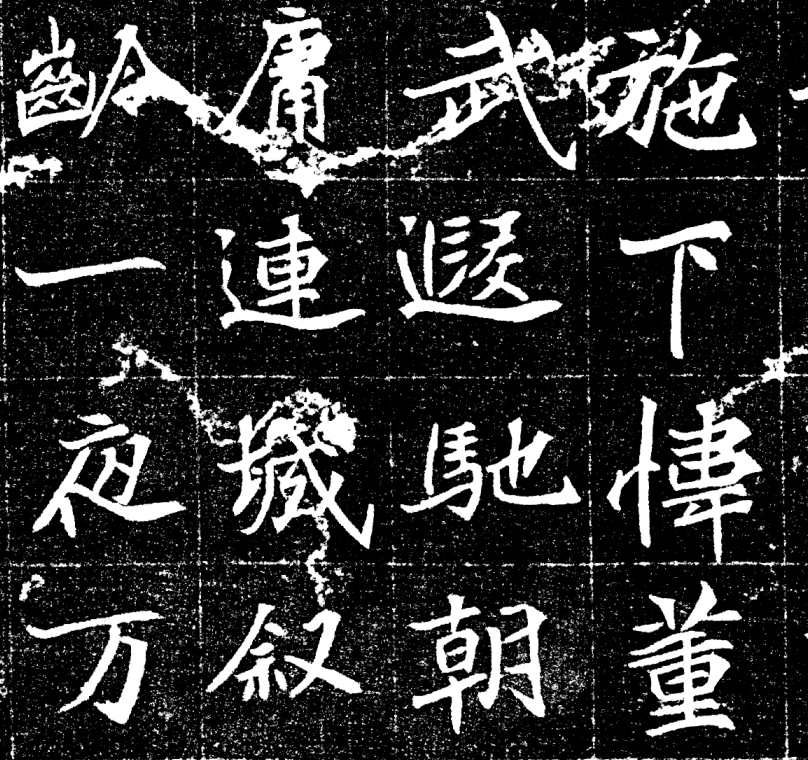 施下幃董
武遐馳朝
庸連叙
齡一夜万